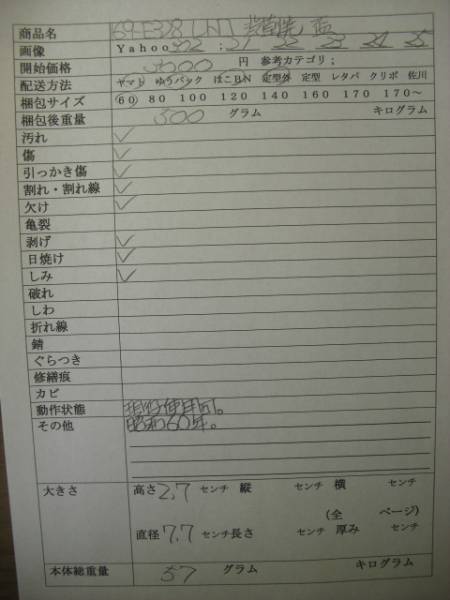 商品名 69-E328(N) 萩焼 皿
画像 Yahoo 322 ; 21 22 23 24 25
開始価格 3500 円 参考カテゴリ;
配送方法 ヤマト ゆうパック はこBOON 定型外 定型 レタパ クリポ 佐川
梱包サイズ 60 80 100 120 140 160 170 170～
梱包後重量 300 グラム キログラム
汚れ ✓
傷 ✓
引っかき傷 ✓
割れ・割れ線 ✓
欠け ✓
亀裂
剥げ ✓
日焼け ✓
しみ ✓
破れ
しわ
折れ線
錆
ぐらつき
修繕痕
カビ
動作状態 現状使用可。
その他 昭和60年。
大きさ 高さ 2,7 センチ 縦 センチ 横 センチ
(全 ページ)
直径 7,7 センチ 長さ センチ 厚み センチ
本体総重量 57 グラム キログラム